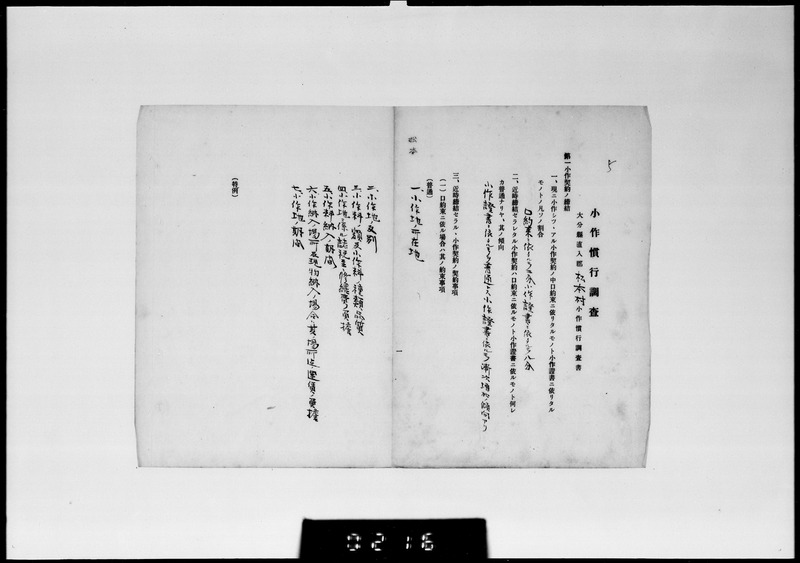 5
小作慣行調査
大分縣直入郡松本村小作慣行調査書
第一小作契約ノ締結
一、現ニ小作シツヽアル小作契約ノ中口約束ニ依リタルモノト小作證書ニ依リタル
モノトノ凡ソノ割合
口約束ニ依
小作證書ニ依
八分
二、近時締結セラレタル小作契約ハ口約束ニ依ルモノト小作證書ニ依ルモノト何レ
カ普通ナリヤ、其ノ傾向
小作證書ニ依
普通
小作證書ニ依
漸次増加ノ傾向アリ
三、近時締結セラルヽ小作契約ノ契約事項
(一)口約束ニ依ル場合ハ其ノ約束事項
(普通)
一、小作地ノ所在地
松本
一
二、小作地ノ反別
三、小作料ノ額及小作料ノ種類品質
四、小作地ニ係ル諸税並修繕費ノ負擔
五、小作料納入ノ期間
六、小作納入場所及現物納入ノ場合ハ其場所及運賃ノ負擔
七、小作地ノ期間
(特例)
0216